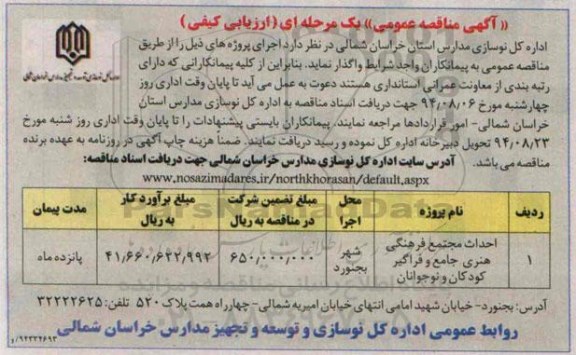 « آگهی مناقصه عمومی» یک مرحله ای (ارزیابی کیفی)
اداره کل نوسازی مدارس استان خراسان شمالی در نظر دارد اجرای پروژه های ذیل را از طریق
مناقصه عمومی به پیمانکاران واجد شرایط واگذار نماید. بنابراین از کلیه پیمانکارانی که دارای
رتبه بندی از معاونت عمرانی استانداری هستند دعوت به عمل می آید تا پایان وقت اداری روز
چهارشنبه مورخ ۹۴٫۰۸٫۰۶ جهت دریافت اسناد مناقصه به اداره کل نوسازی مدارس استان
خراسان شمالی- امور قراردادها مراجعه نمایند. پیمانکاران بایستی پیشنهادات را تا پایان وقت اداری روز شنبه مورخ
۹۴٫۰۸٫۲۳ تحویل دبیرخانه اداره کل نموده و رسید دریافت نمایند. ضمناً هزینه چاپ آگهی در روزنامه به عهده برنده
مناقصه می باشد. آدرس سایت اداره کل نوسازی مدارس خراسان شمالی جهت دریافت اسناد مناقصه:
www.nosazimadares.ir/northkhorasan/default.aspx
ردیف نام پروژه محل اجرا مبلغ تضمین شرکت در مناقصه به ریال مبلغ برآورد کار به ریال مدت پیمان
۱ احداث مجتمع فرهنگی هنری جامع و فراگیر کودکان و نوجوانان شهر بجنورد ۶۵۰٫۰۰۰٫۰۰۰ ۴۱٫۶۶۰٫۶۲۲٫۹۹۲ پانزده ماه
آدرس: بجنورد- خیابان شهید امامی انتهای خیابان امیریه شمالی- چهارراه همت پلاک ۵۲۰ تلفن: ۳۲۲۲۲۶۲۵
روابط عمومی اداره کل نوسازی و توسعه و تجهیز مدارس خراسان شمالی